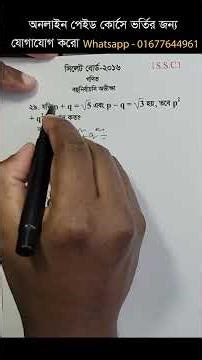 অনলাইন পেইড কোর্সে ভর্তির জন্য
যোগাযোগ করো Whatsapp - 01677644961
সিলেট বোর্ড-২০১৬
[S.S.C]
গণিত
বহুনির্বাচনি অভীক্ষা
২৯. যদি p + q = √5 এবং p − q = √3 হয়, তবে p²
+ q² কত?